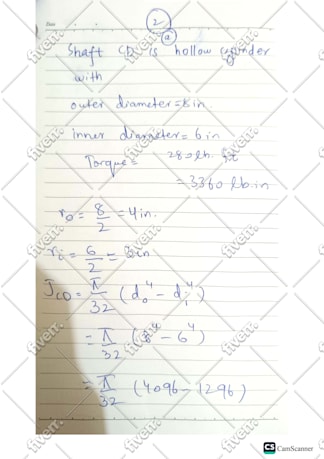 Date
2
a
Shaft CD is hollow cylinder
with
outer diameter = 8 in.
inner diameter = 6 in
Torque = 280 lb. ft
= 3360 lb.in
r₀ = 8/2 = 4 in.
rᵢ = 6/2 = 3 in
J_CD = π/32 (d₀⁴ - dᵢ⁴)
= π/32 (8⁴ - 6⁴)
= π/32 (4096 - 1296)
fiverr.
CS CamScanner